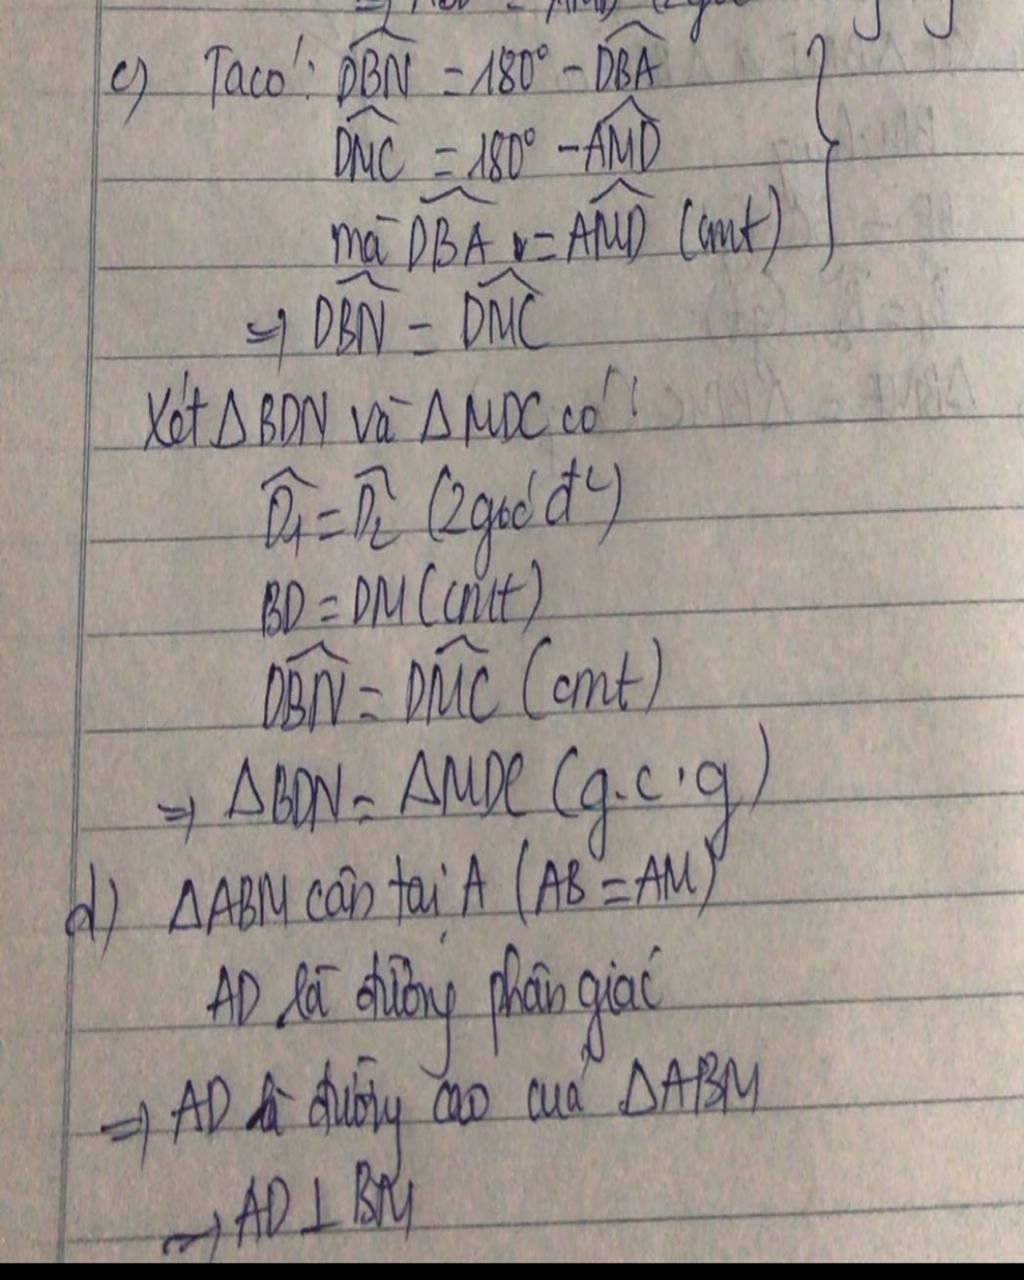 c) Ta có: \widehat{DBN} = 180° - \widehat{DBA}
\widehat{DMC} = 180° - \widehat{AMD}
mà \widehat{DBA} = \widehat{AMD} (cmt)
⇒ \widehat{DBN} = \widehat{DMC}
Xét ΔBDN và ΔMDC có:
\widehat{D_1} = \widehat{D_2} (2 góc đ²)
BD = DM (cmt)
\widehat{DBN} = \widehat{DMC} (cmt)
⇒ ΔBDN = ΔMDC (g.c.g)
d) ΔABM cân tại A (AB = AM)
AD là đường phân giác
⇒ AD là đường cao của ΔABM
→ AD ⊥ BM